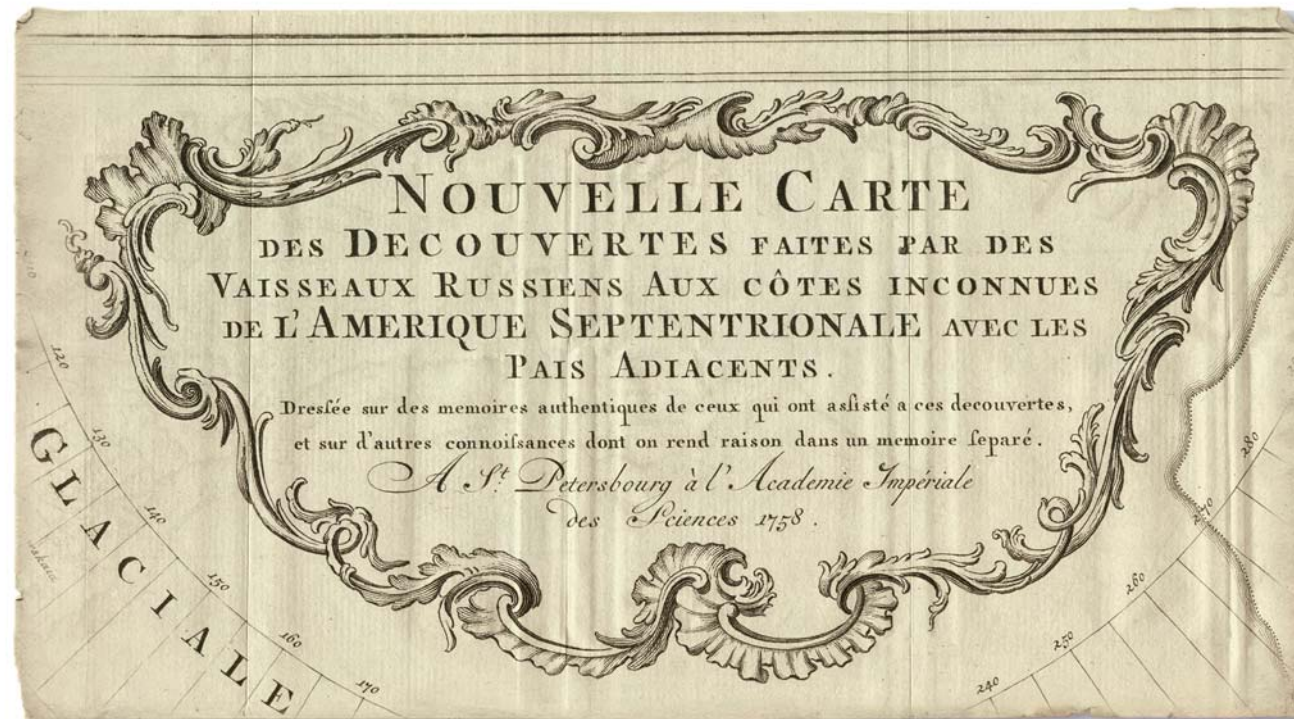 NOUVELLE CARTE
DES DECOUVERTES FAITES PAR DES
VAISSEAUX RUSSIENS AUX CÔTES INCONNUES
DE L'AMERIQUE SEPTENTRIONALE AVEC LES
PAIS ADIACENTS.
Dresſée sur des memoires authentiques de ceux qui ont asſisté a ces decouvertes,
et sur d'autres connoiſsances dont on rend raison dans un memoire ſeparé.
A St. Petersbourg à l'Academie Impériale
des Sciences 1758.
120
130
140
150
160
170
GLACIALE
240
250
260
270
280